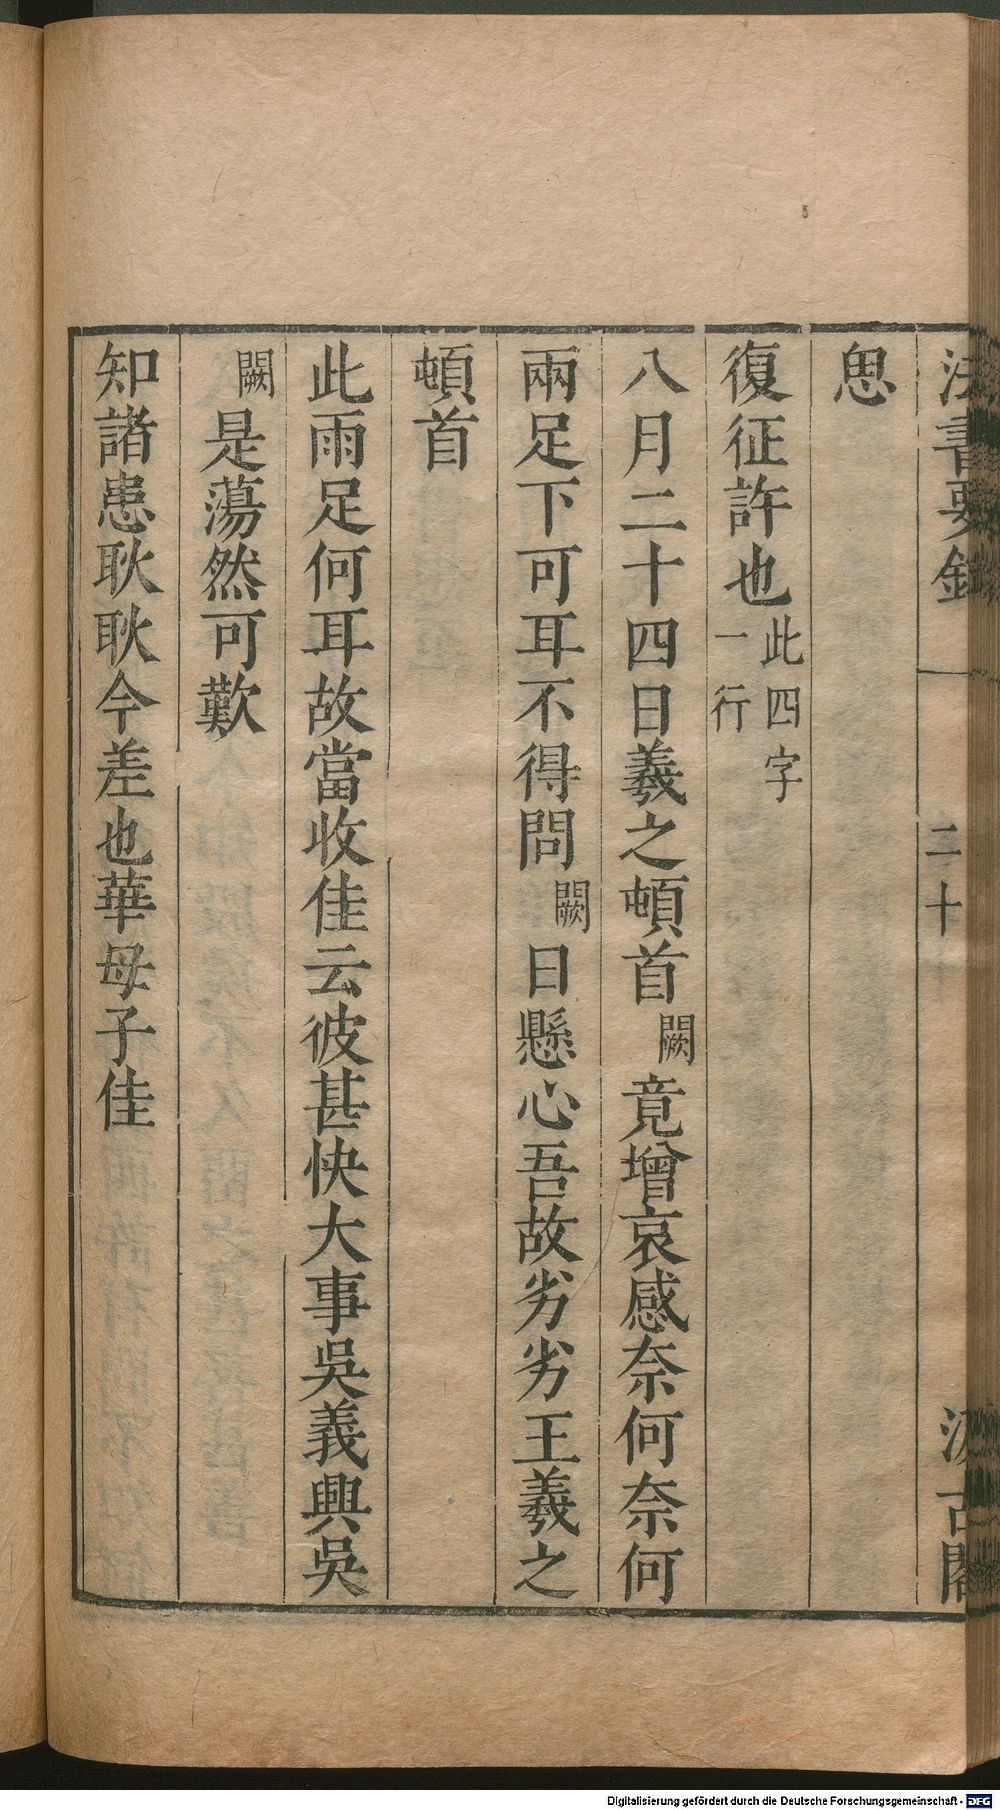 法書要錄 二十 汲古閣
思
復征許也此四字一行
八月二十四日羲之頓首闕竟增哀感奈何奈何
兩足下可耳不得問闕日懸心吾故劣劣王羲之
頓首
此雨足何耳故當收佳云彼甚快大事吳義興吳
闕是蕩然可歎
知諸患耿耿今差也華母子佳
Digitalisierung gefördert durch die Deutsche Forschungsgemeinschaft - DFG